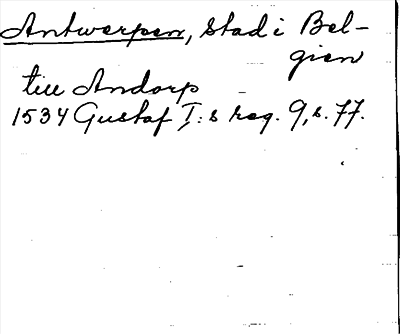 Antwerpen, stad i Bel-
gien
till Andorp
1534 Gustaf I:s reg. 9, s. 77.